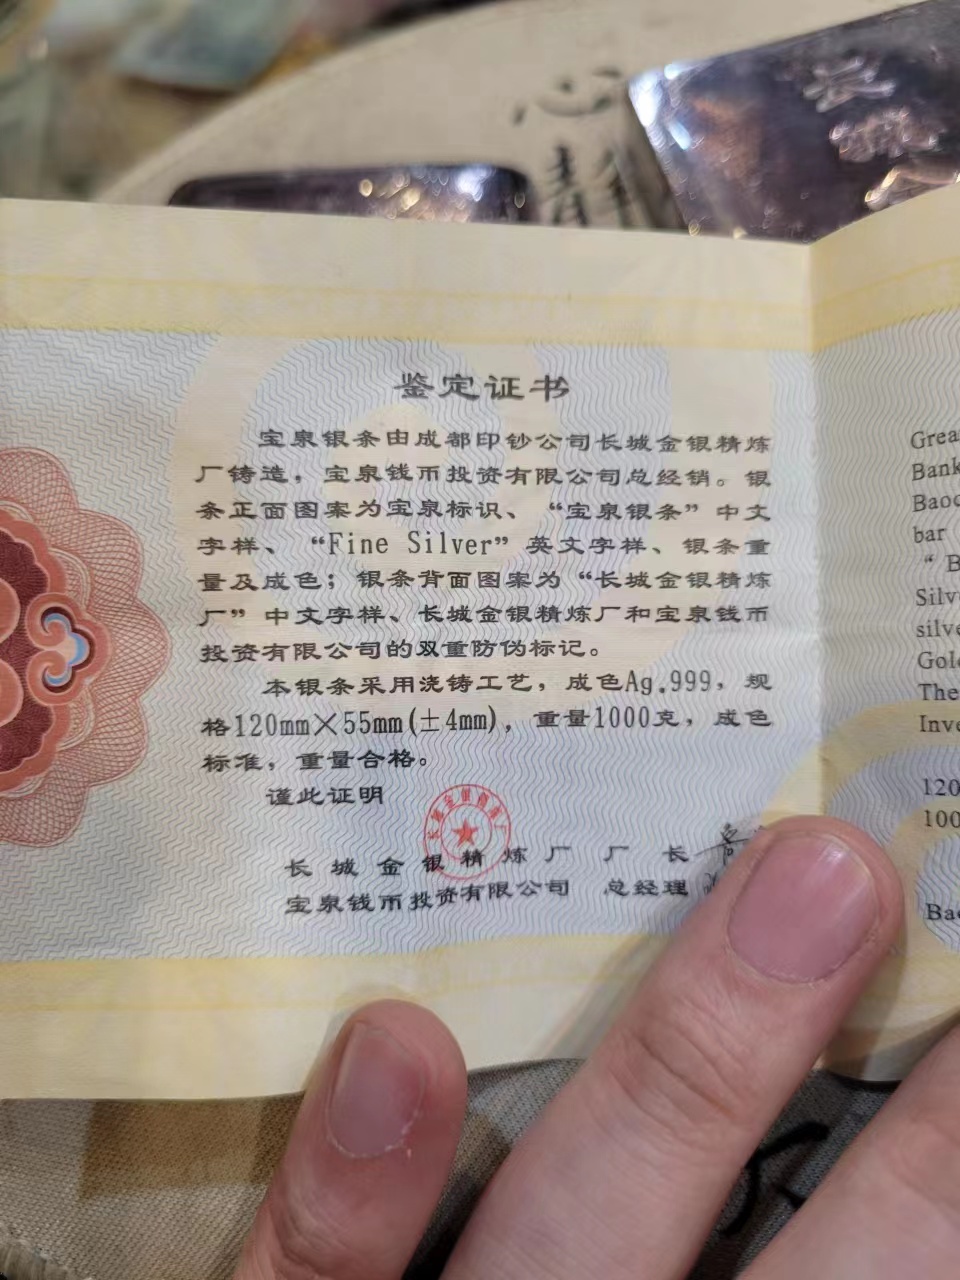 心
静
长
城
鉴定证书
宝泉银条由成都印钞公司长城金银精炼
厂铸造，宝泉钱币投资有限公司总经销。银
条正面图案为宝泉标识、“宝泉银条”中文
字样、“Fine Silver”英文字样、银条重
量及成色；银条背面图案为“长城金银精炼
厂”中文字样、长城金银精炼厂和宝泉钱币
投资有限公司的双重防伪标记。
本银条采用浇铸工艺，成色Ag.999，规
格120mm×55mm(±4mm)，重量1000克，成色
标准，重量合格。
谨此证明
长城金银精炼厂
长城金银精炼厂 厂长
宝泉钱币投资有限公司 总经理
Grea
Bank
Baoc
bar
“ B
Silve
silve
Gold
The
Inve
120
100
Bao